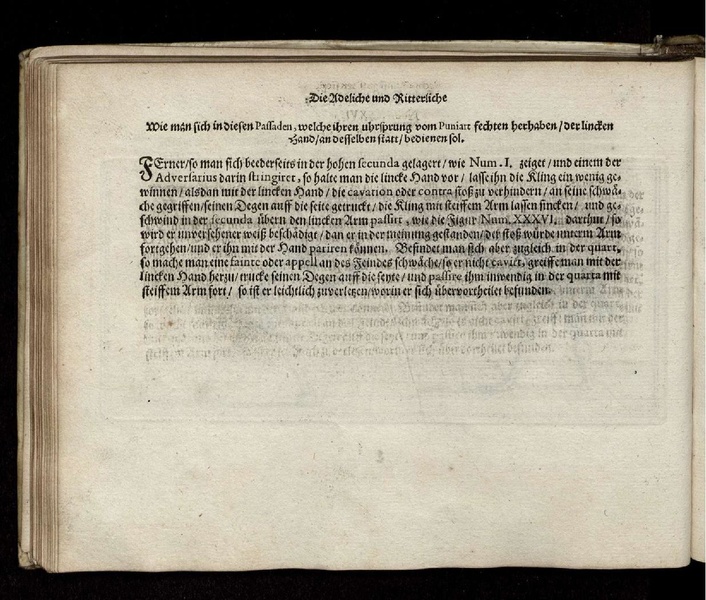 Die Adeliche und Ritterliche
Wie man sich in diesen Passaden, welche ihren uhrsprung vom Puniart fechten herhaben / der lincken
Hand / an desselben statt / bedienen sol.
FErner / so man sich beederseits in der hohen secunda gelagert / wie Num. I. zeiget / und einem der
Adversarius darin stringiret, so halte man die lincke Hand vor / lasse ihn die Kling ein wenig ge-
winnen / alsdan mit der lincken Hand / die cavation oder contra stoß zu verhindern / an seine schwä-
che gegriffen / seinen Degen auff die seite getruckt / die Kling mit steiffem Arm lassen sincken / und ge-
schwind in der secunda übern den lincken Arm passirt, wie die Figur Num. XXXVI. darthut / so
wird er unversehener weiß beschädigt / dan er in der meinung gestanden / der stoß würde unterm Arm
fortgehen / und er ihn mit der Hand pariren können. Befindet man sich aber zugleich in der quart,
so mache man eine fainte oder appell an des Feindes schwäche / so er nicht cavirt, greiffe man mit der
lincken Hand herzu / trucke seinen Degen auff die seyte / und passire ihm inwendig in der quarta mit
steiffem Arm fort / so ist er leichtlich zuverletzen / worin er sich übervortheilet befunden.